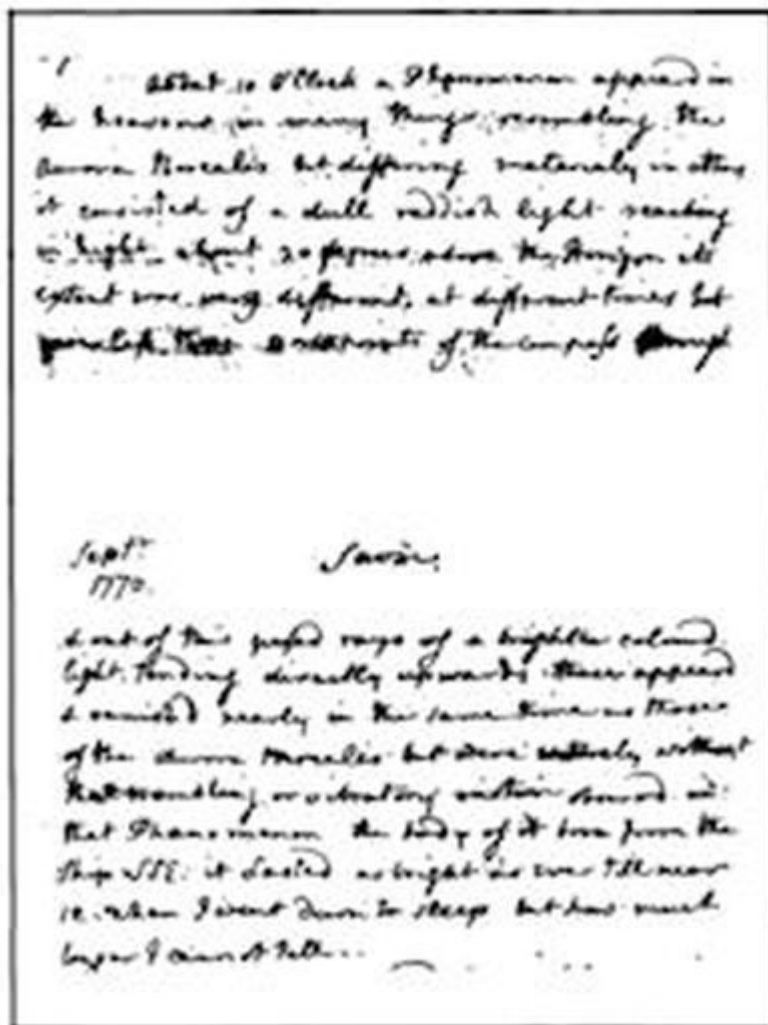 about 10 O'Clock a Phænomenon appeard in
the heavens in many things resembling the
Aurora Borealis but differing materialy in others
it consisted of a dull reddish light reaching
in hight about 20 degrees above the Horizon its
extent was very different at different times but
never less than points of the compass
Septr
1770.
Savu.
& out of this passd rays of a brighter colourd
light tending directly upwards these appeard
& vanishd nearly in the same time as those
of the Aurora Borealis but were entirely without
that trembling or vibratory motion observd in
that Phænomenon the body of it bore from the
ship SSE: it lasted as bright as ever till near
12 when I went down to sleep but how much
longer I cannot tell..